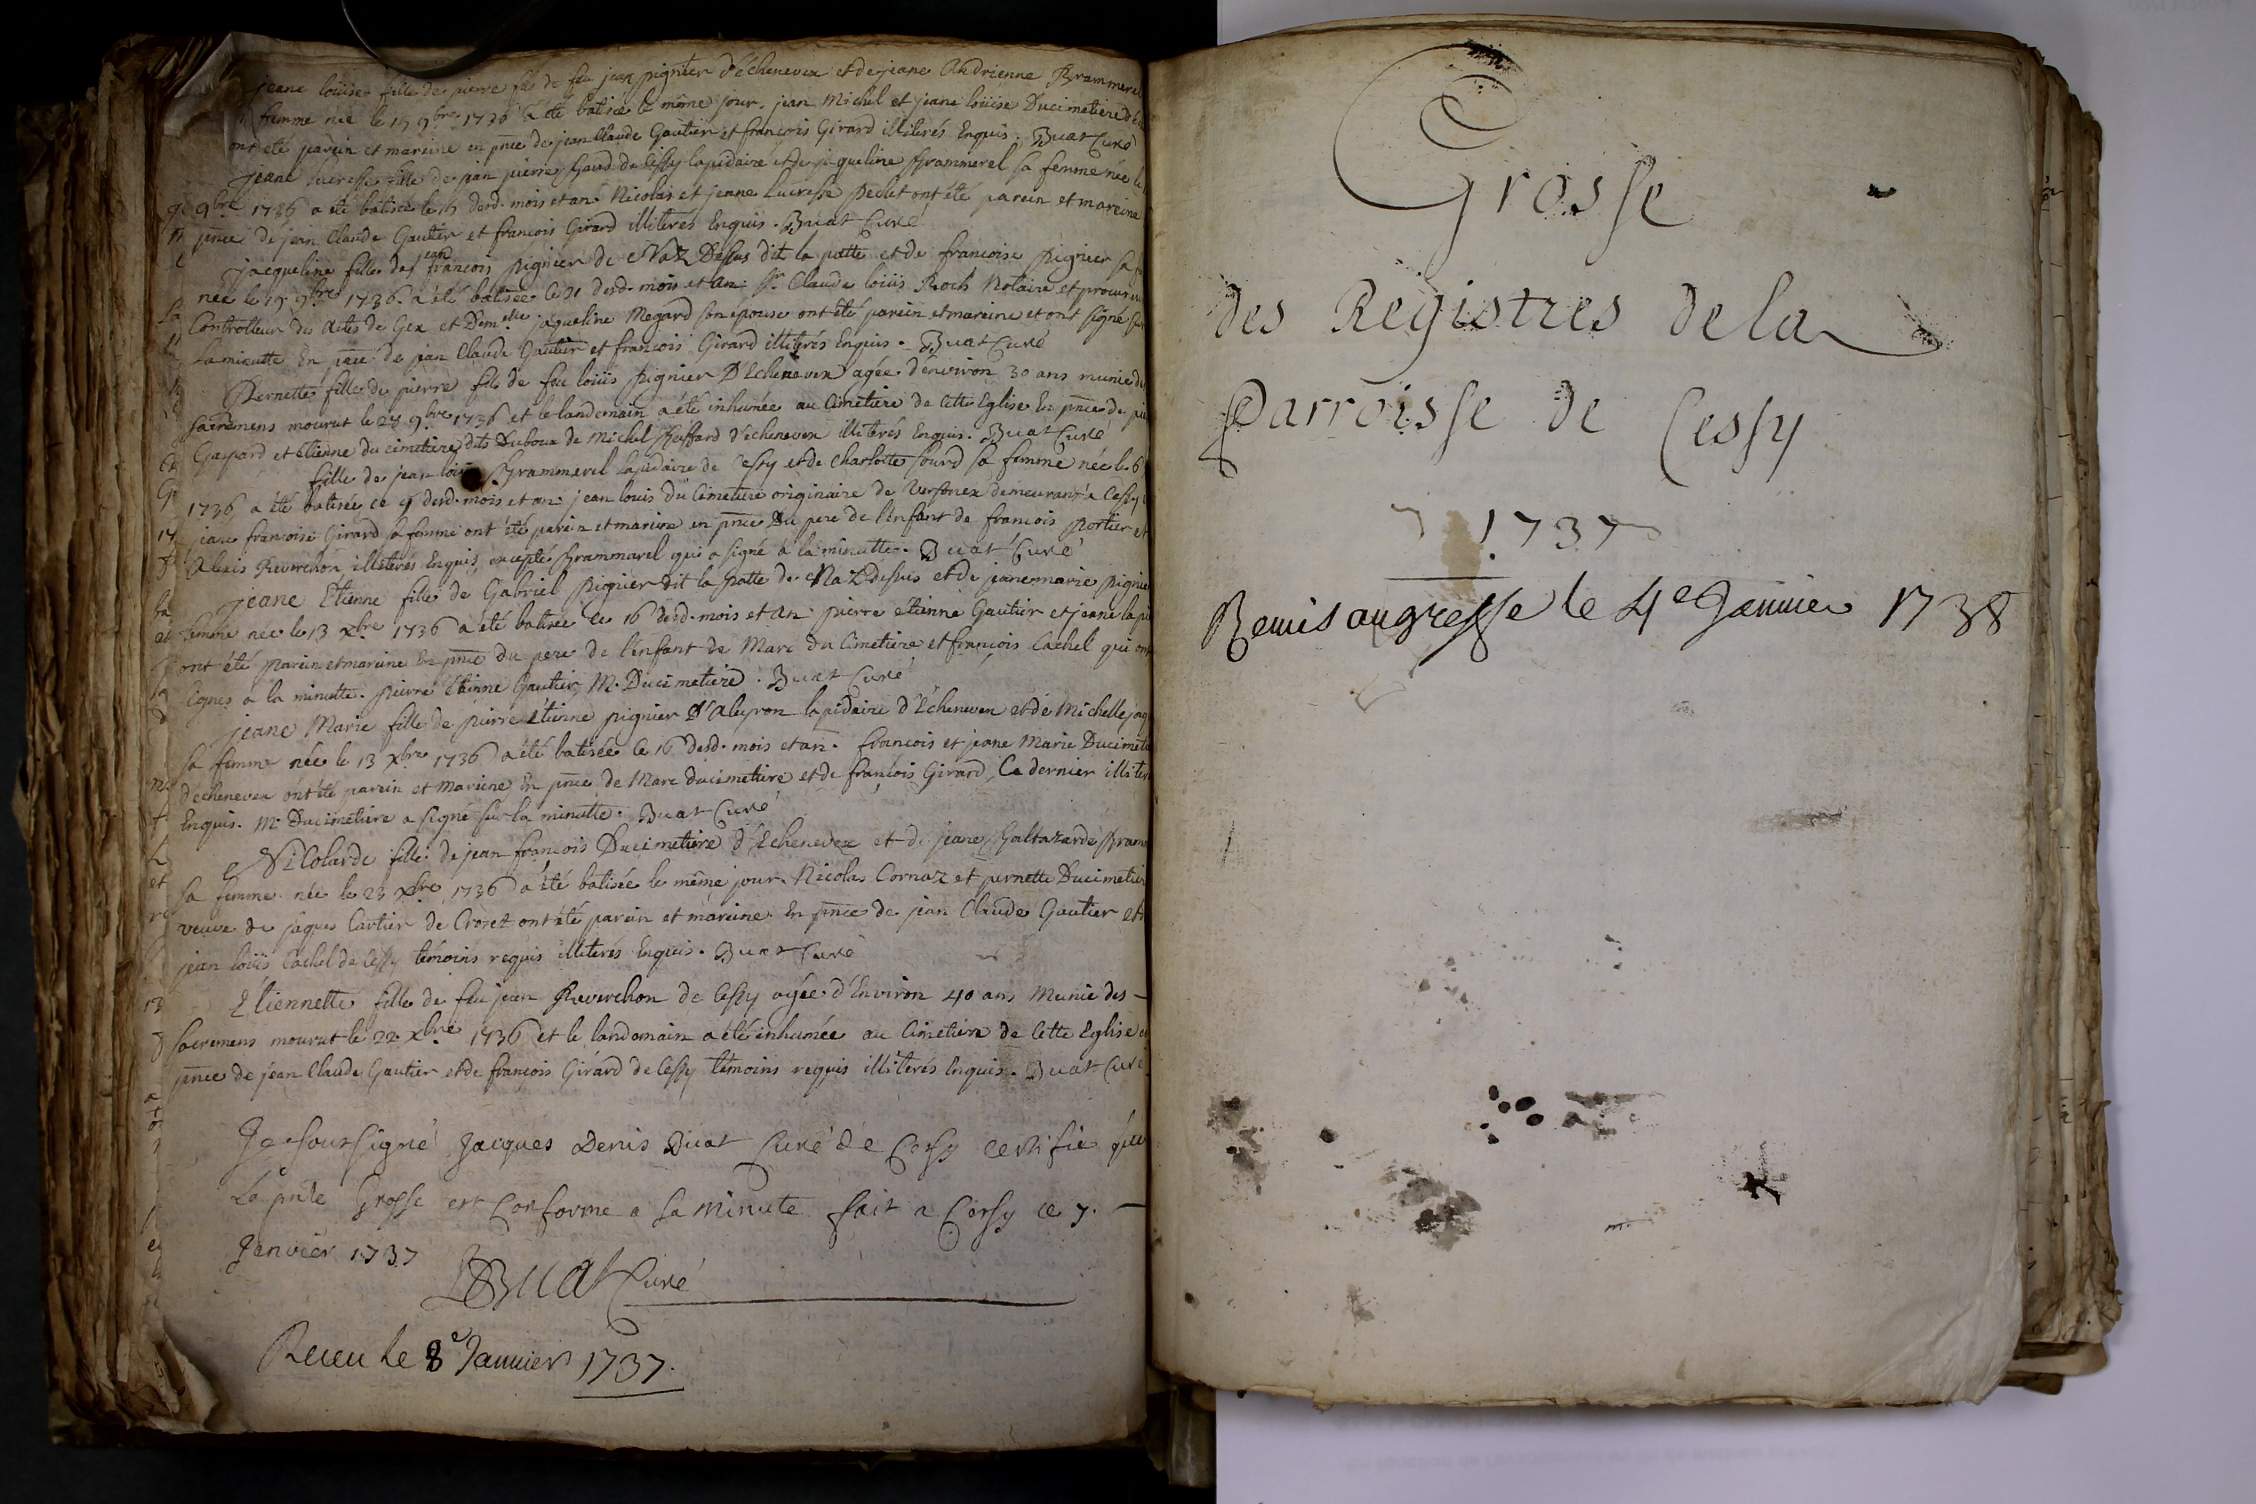 jeane loüise fille de pierre fils de feu jean pignier d'échenevex et de jeane Andrienne Brammerel
femme née le 19 9bre 1736 a été batisée le même jour. jean Michel et jeane loüise Ducimetiere
ont été parein et mareine en pnce de jean Claude Gautier et françois Girard illiterés Enquis. Buat Curé
jeane lucresse fille de jean pierre Gaud de Cessy lapidaire et de jaqueline Brammerel sa femme née le
9bre 1736 a été batisée le desd. mois et an. Nicolas et jeanne Lucresse Peclet ont été parein et mareine
pnce de jean Claude Gautier et francois Girard illiterés Enquis. Buat Curé
jacqueline fille de jean francois pignier de Naz Dessus dit la patte et de francoise pignier sa
née le 19 9bre 1736. a été batisée le 21 desd. mois et an. Sr. Claude loüis Roch Notaire et procureur
Controlleur des actes de Gex et Demlle jaqueline Megard son epouse ont été parein et mareine et ont signé sur
la minutte En pnce de jean Claude Gautier et francois Girard illiterés Enquis. Buat Curé
Pernette fille de pierre fils de feu loüis pignier D'Echenevex agée d'environ 30 ans munie des
sacremens mourut le 28 9bre 1736 et le landemain a été inhumée au Cimetiere de Cette Eglise En pnce de
Gaspard et Etienne du cimetiere dits Duboux de Michel Chaffard d'echenevex illiterés Enquis. Buat Curé
fille de jean loüis Brammerel lapidaire de Cessy et de Charlotte Sourd sa femme née le 6
1736 a été batisée le 9 desd. mois et an. jean louis du Cimetiere originaire de Versonex demeurant a Cessy
jeane francoise Girard sa femme ont été parein et mareine en pnce Du pere de l'enfant de francois Portier et
Alexis Reverchon illiterés Enquis, excepté Brammarel qui a signé à la minutte. Buat Curé
jeane Etienne fille de Gabriel pignier dit la patte de Naz dessus et de jeanemarie pignier
femme née le 13 xbre 1736 a été batisée le 16 desd. mois et an. pierre étienne Gautier et jeane
ont été parein et mareine En pnce du pere de l'enfant de Marc du Cimetiere et françois Cachel qui ont
signés a la minutte. pierre Etienne Gautier, M. Ducimetiere. Buat Curé
jeane Marie fille de pierre Etienne pignier D'Aleyron lapidaire d'Echenevex et de Michelle
sa femme née le 13 xbre 1736 a été batisée le 16 desd. mois et an. francois et jeane Marie Ducimetiere
d'echenevex ont été parein et Mareine En pnce de Marc ducimetiere et de françois Girard, Ce dernier illiteré
Enquis. M. Ducimetiere a signé sur la minutte. Buat Curé
Nicolarde fille de jean francois Ducimetiere d'Echenevex et de jeane Baltazarde
sa femme née le 23 xbre 1736 a été batisée le même jour. Nicolas Cornaz et pernette Ducimetiere
veuve de jaques Cartier de Crozet ont été parein et mareine En pnce de jean Claude Gautier et
jean loüis Cachel de Cessy témoins requis illiterés Enquis. Buat Curé
Etiennette fille de feu jean Reverchon de Cessy agée d'Environ 40 ans Munie des -
sacremens mourut le 22 xbre 1736 et le landemain a été inhumée au Cimetiere de Cette Eglise
pnce de jean Claude Gautier et de francois Girard de Cessy témoins requis illiterés Enquis. Buat Curé
Je soussigné Jacques Denis Buat Curé de Cessy certifie que
La pnte Grosse est Conforme a la minute fait a Cessy ce 7. -
Janvier 1737
Buat Curé
Receu le 8e Janvier 1737.
Grosse
des Registres de la
Parroisse de Cessy
1737
Remis au greffe le 4e Janvier 1738